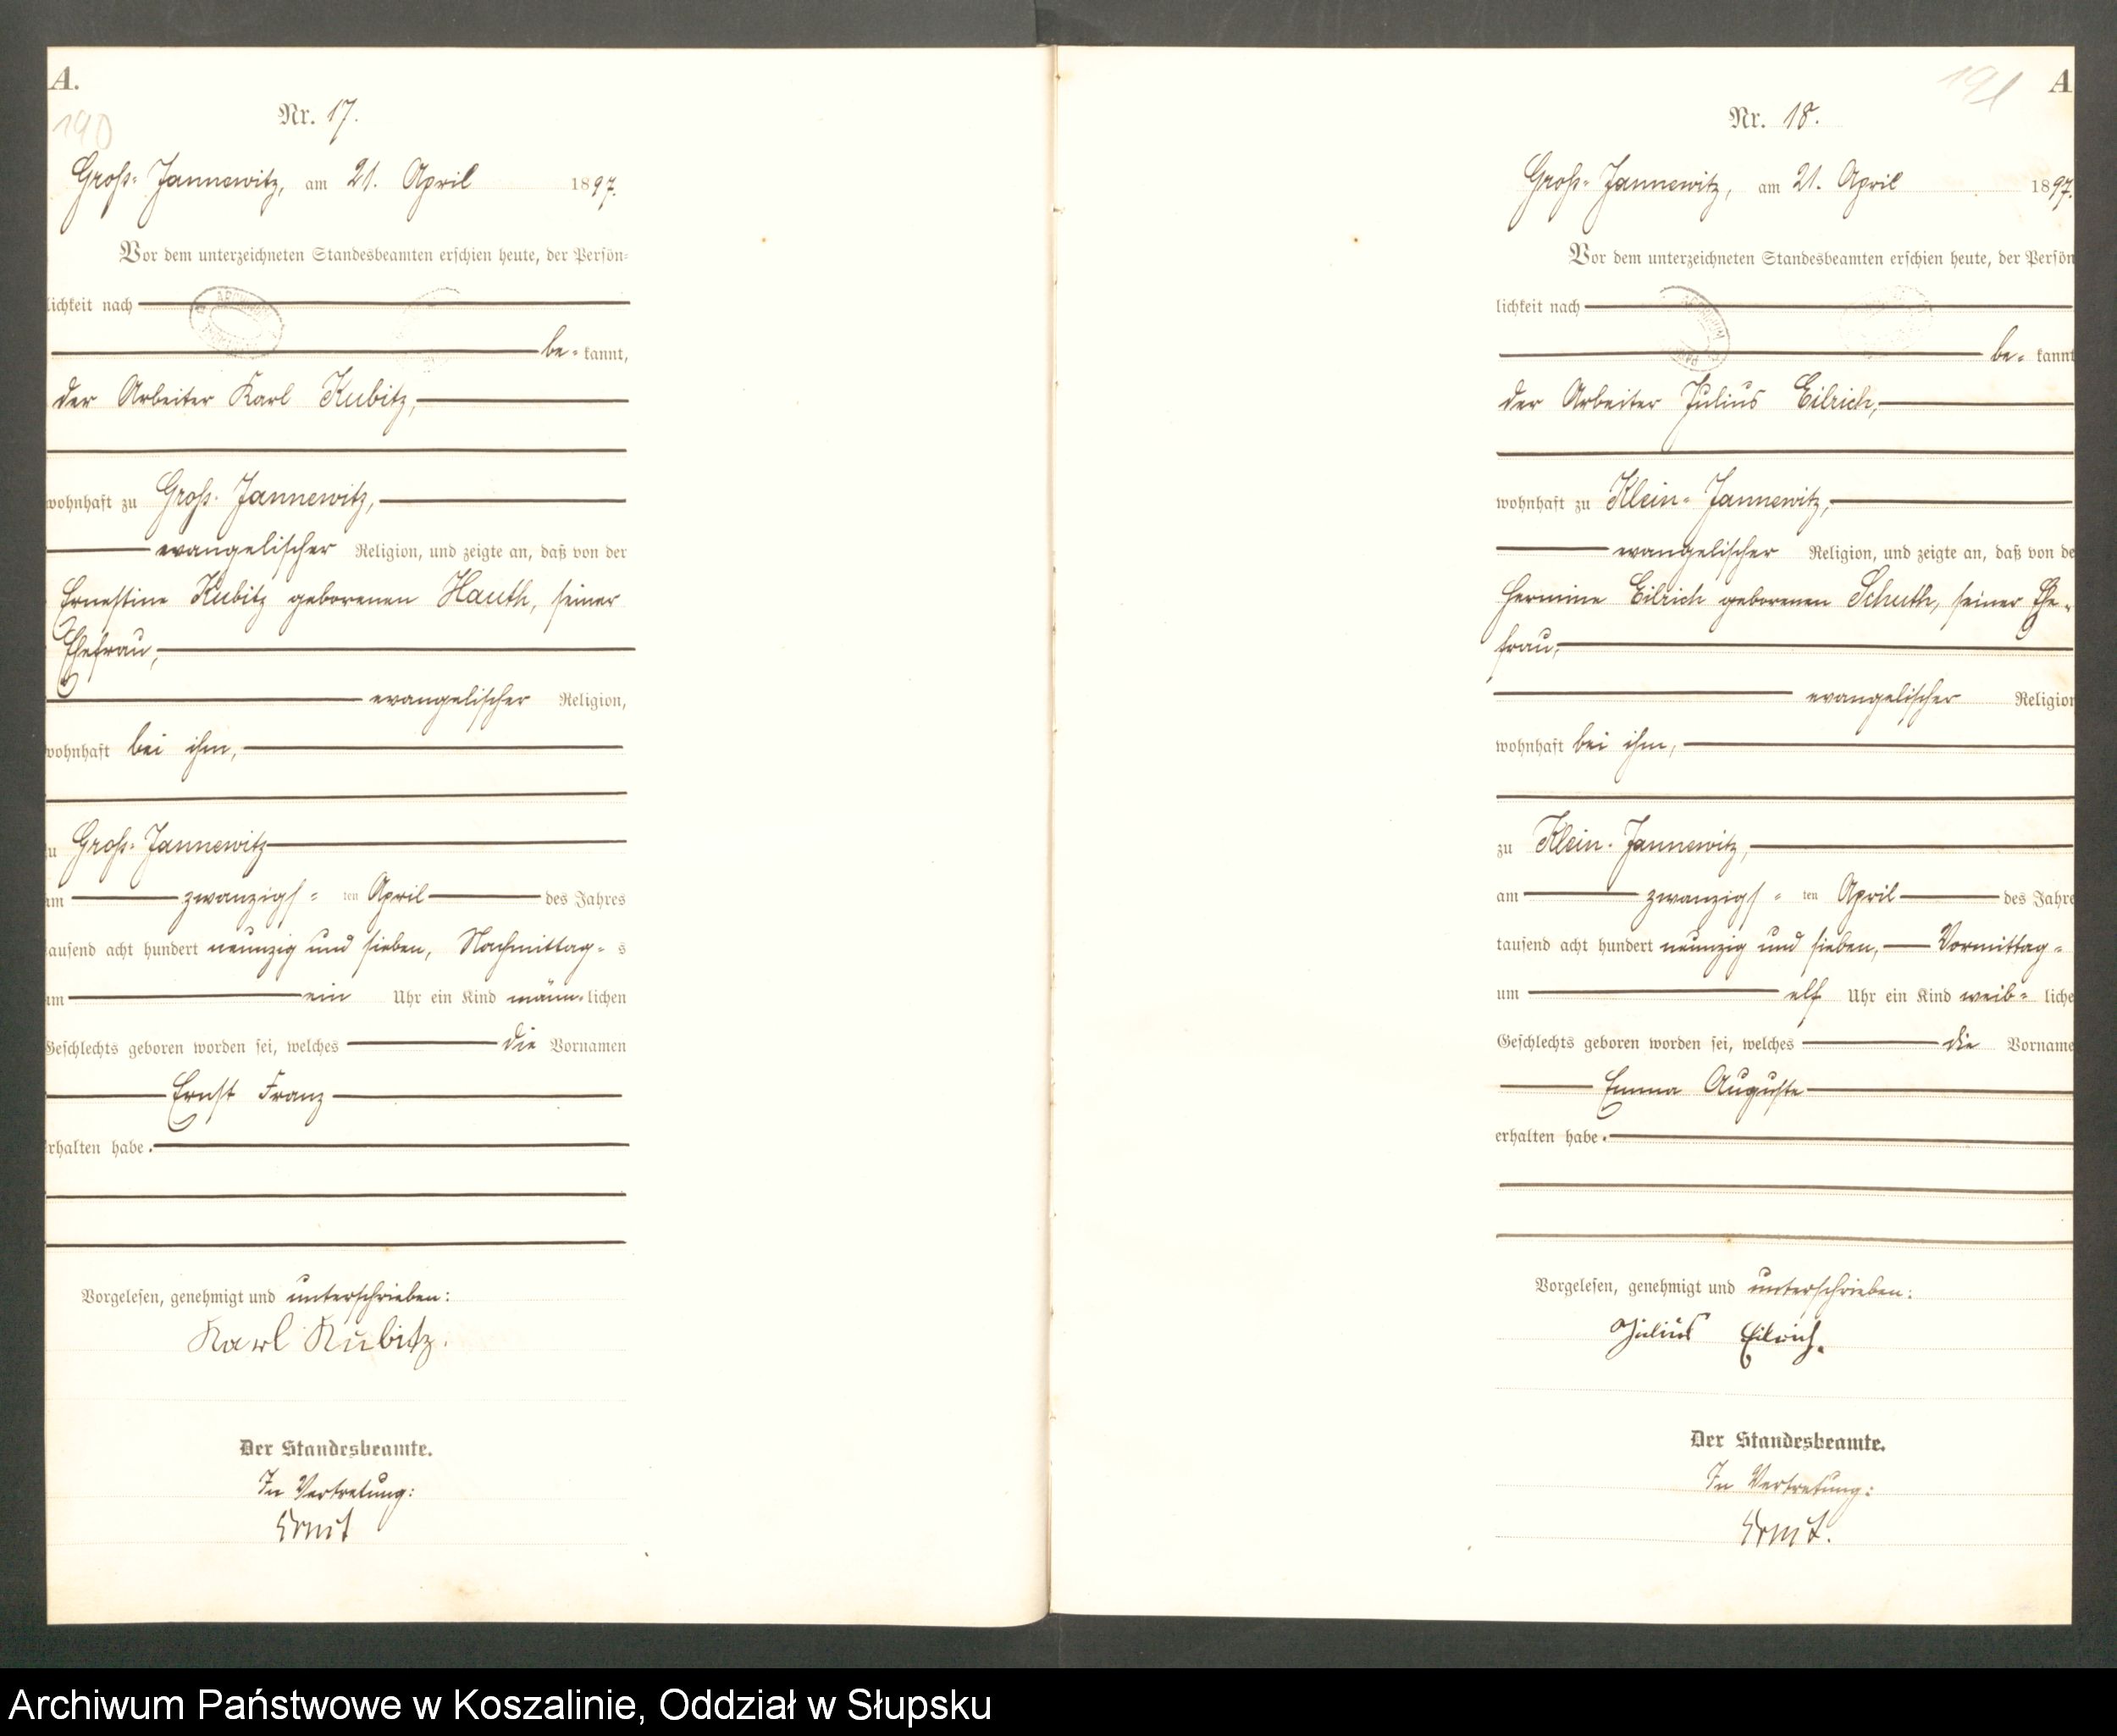 A.
190
Nr. 17.
Groß-Jannewitz, am 21. April 1897.
Vor dem unterzeichneten Standesbeamten erschien heute, der Persön-
lichkeit nach
be- kannt,
der Arbeiter Karl Kubitz,
wohnhaft zu Groß-Jannewitz,
evangelischer Religion, und zeigte an, daß von der
Ernestine Kubitz geborenen Hauth, seiner
Ehefrau,
evangelischer Religion,
wohnhaft bei ihm,
zu Groß-Jannewitz
am zwanzigs- ten April des Jahres
tausend acht hundert neunzig und sieben, Nachmittag- s
um ein Uhr ein Kind männ-lichen
Geschlechts geboren worden sei, welches die Vornamen
Ernst Franz
erhalten habe.
Vorgelesen, genehmigt und unterschrieben:
Karl Kubitz.
Der Standesbeamte.
In Vertretung:
191
A
Nr. 18.
Groß-Jannewitz, am 21. April 1897.
Vor dem unterzeichneten Standesbeamten erschien heute, der Persön
lichkeit nach
be- kannt
der Arbeiter Julius Eilrich,
wohnhaft zu Klein-Jannewitz,
evangelischer Religion, und zeigte an, daß von de
Hermine Eilrich geborenen Schuth, seiner Ehe-
frau,
evangelischer Religion
wohnhaft bei ihm,
zu Klein-Jannewitz,
am zwanzigs- ten April des Jahre
tausend acht hundert neunzig und sieben, Vormittag-
um elf Uhr ein Kind weib- liche
Geschlechts geboren worden sei, welches die Vorname
Emma Auguste
erhalten habe.
Vorgelesen, genehmigt und unterschrieben:
Julius Eilrich.
Der Standesbeamte.
In Vertretung:
Archiwum Państwowe w Koszalinie, Oddział w Słupsku